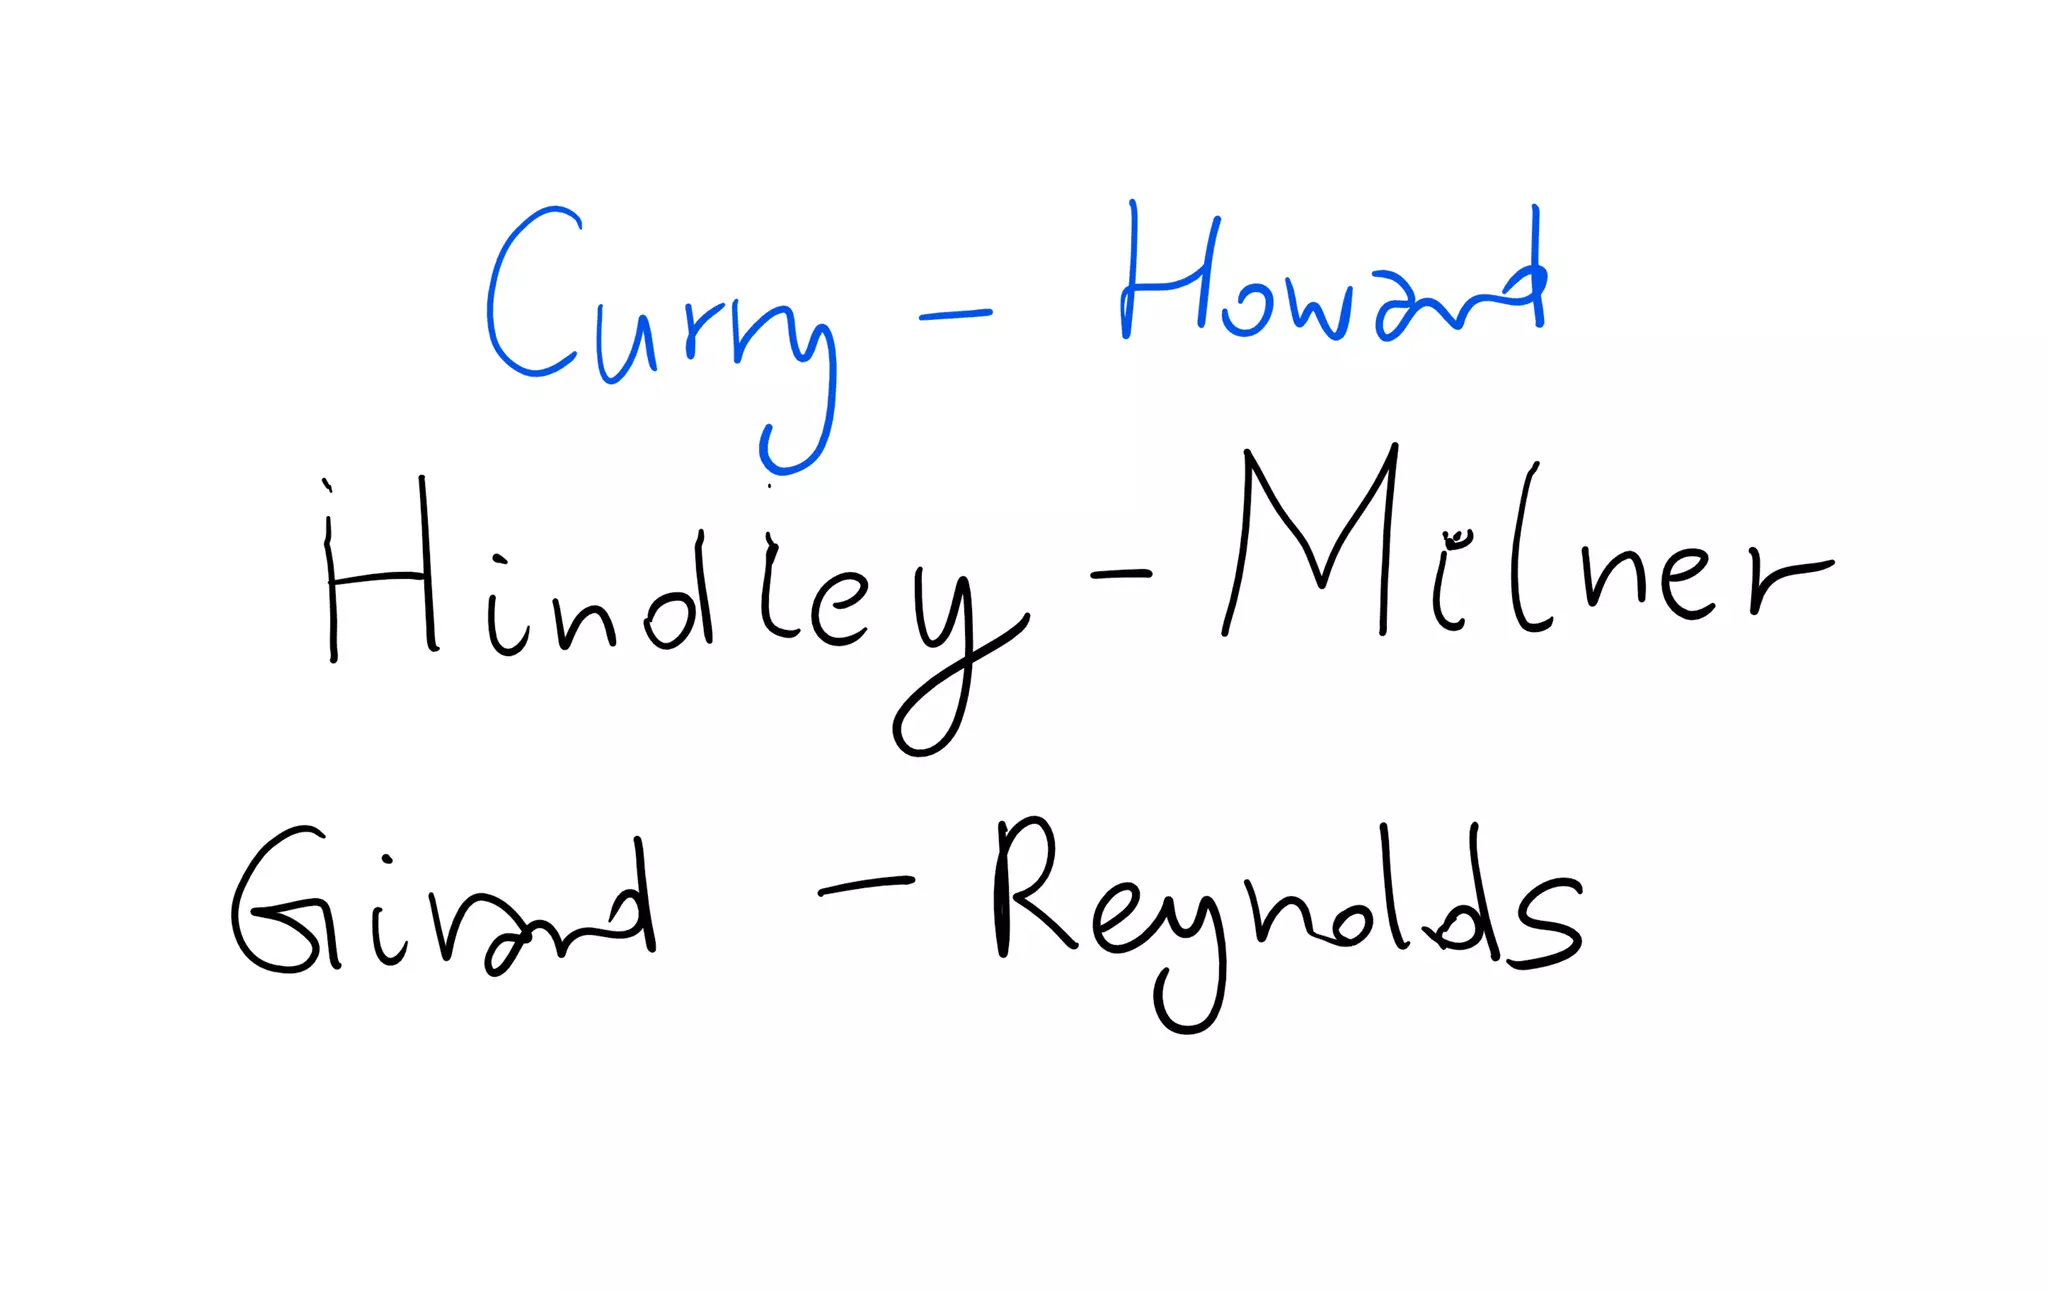 Curry - Howard
Hindley - Milner
Girard - Reynolds